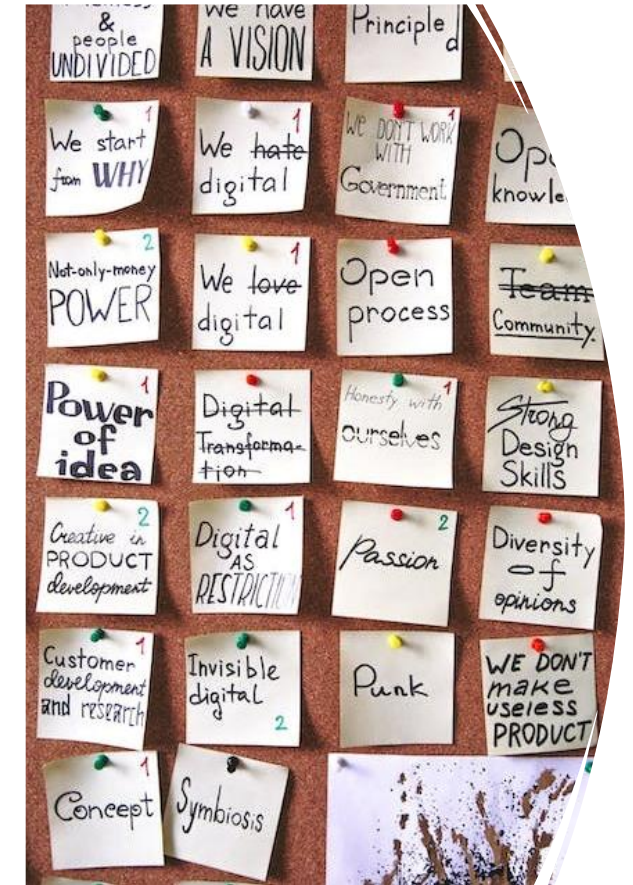 &
people
UNDIVIDED
We have
A VISION
Principle
d
1
We start
from WHY
1
We hate
digital
1
WE DON'T WORK
WITH
Government
2
Not-only-money
POWER
1
We love
digital
Open
process
Team
Community.
1
Power
of
idea
Digital
Transforma-
tion
1
Honesty with
ourselves
Strong
Design
Skills
2
Creative in
PRODUCT
development
1
Digital
AS
RESTRICTION
2
Passion
Diversity
of
opinions
1
Customer
development
and research
Invisible
digital
2
Punk
WE DON'T
make
useless
PRODUCT
1
Concept
Symbiosis